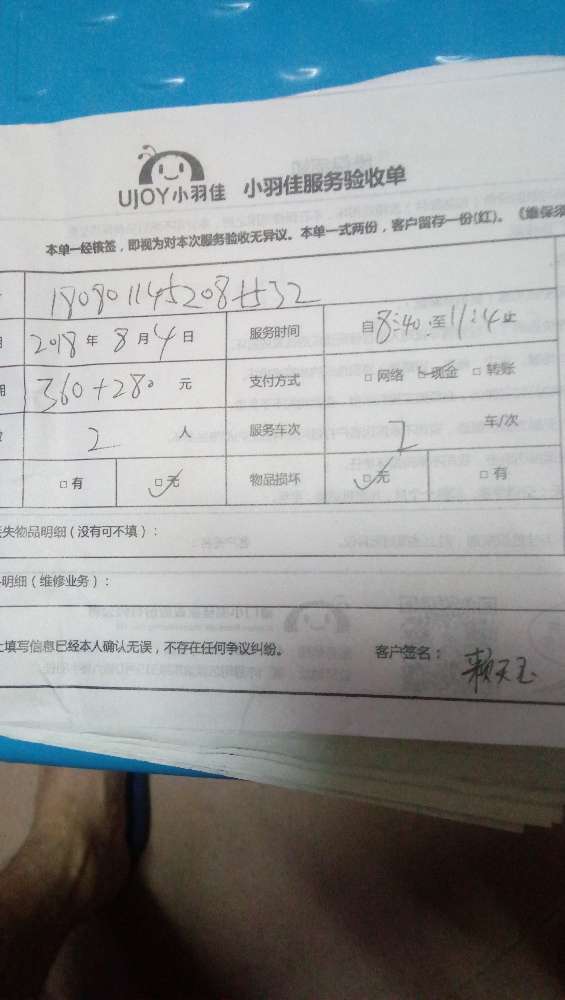 UJOY小羽佳 小羽佳服务验收单
本单一经核签，即视为对本次服务验收无异议。本单一式两份，客户留存一份(红)。《维保须
2018年8月4日 服务时间 自8:40至11:4止
360+280元 支付方式 □网络 □现金 □转账
2人 服务车次 2车/次
□有 □无 物品损坏 □无 □有
失物品明细（没有可不填）：
明细（维修业务）：
上填写信息已经本人确认无误，不存在任何争议纠纷。 客户签名：赖天玉